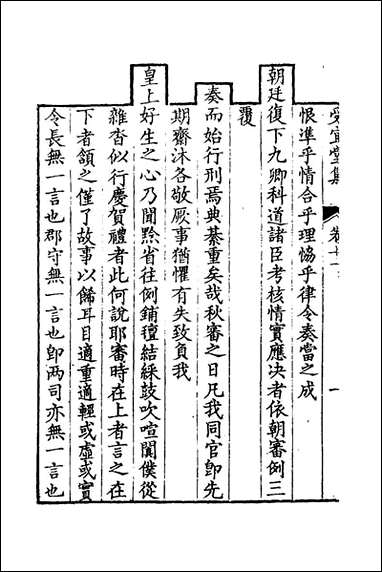 受宜堂集 卷十一 一
恨準乎情合乎理協乎律令奏當之成
朝廷復下九卿科道諸臣考核情實應決者依朝審例三
覆
奏而始行刑焉典綦重矣哉秋審之日凡我同官卽先
期齋沐各敬厥事猶懼有失致負我
皇上好生之心乃聞黔省往例鋪氊結綵鼓吹喧闐僕從
雜沓似行慶賀禮者此何說耶審時在上者言之在
下者頷之僅了故事以餙耳目適重適輕或虛或實
令長無一言也郡守無一言也卽两司亦無一言也